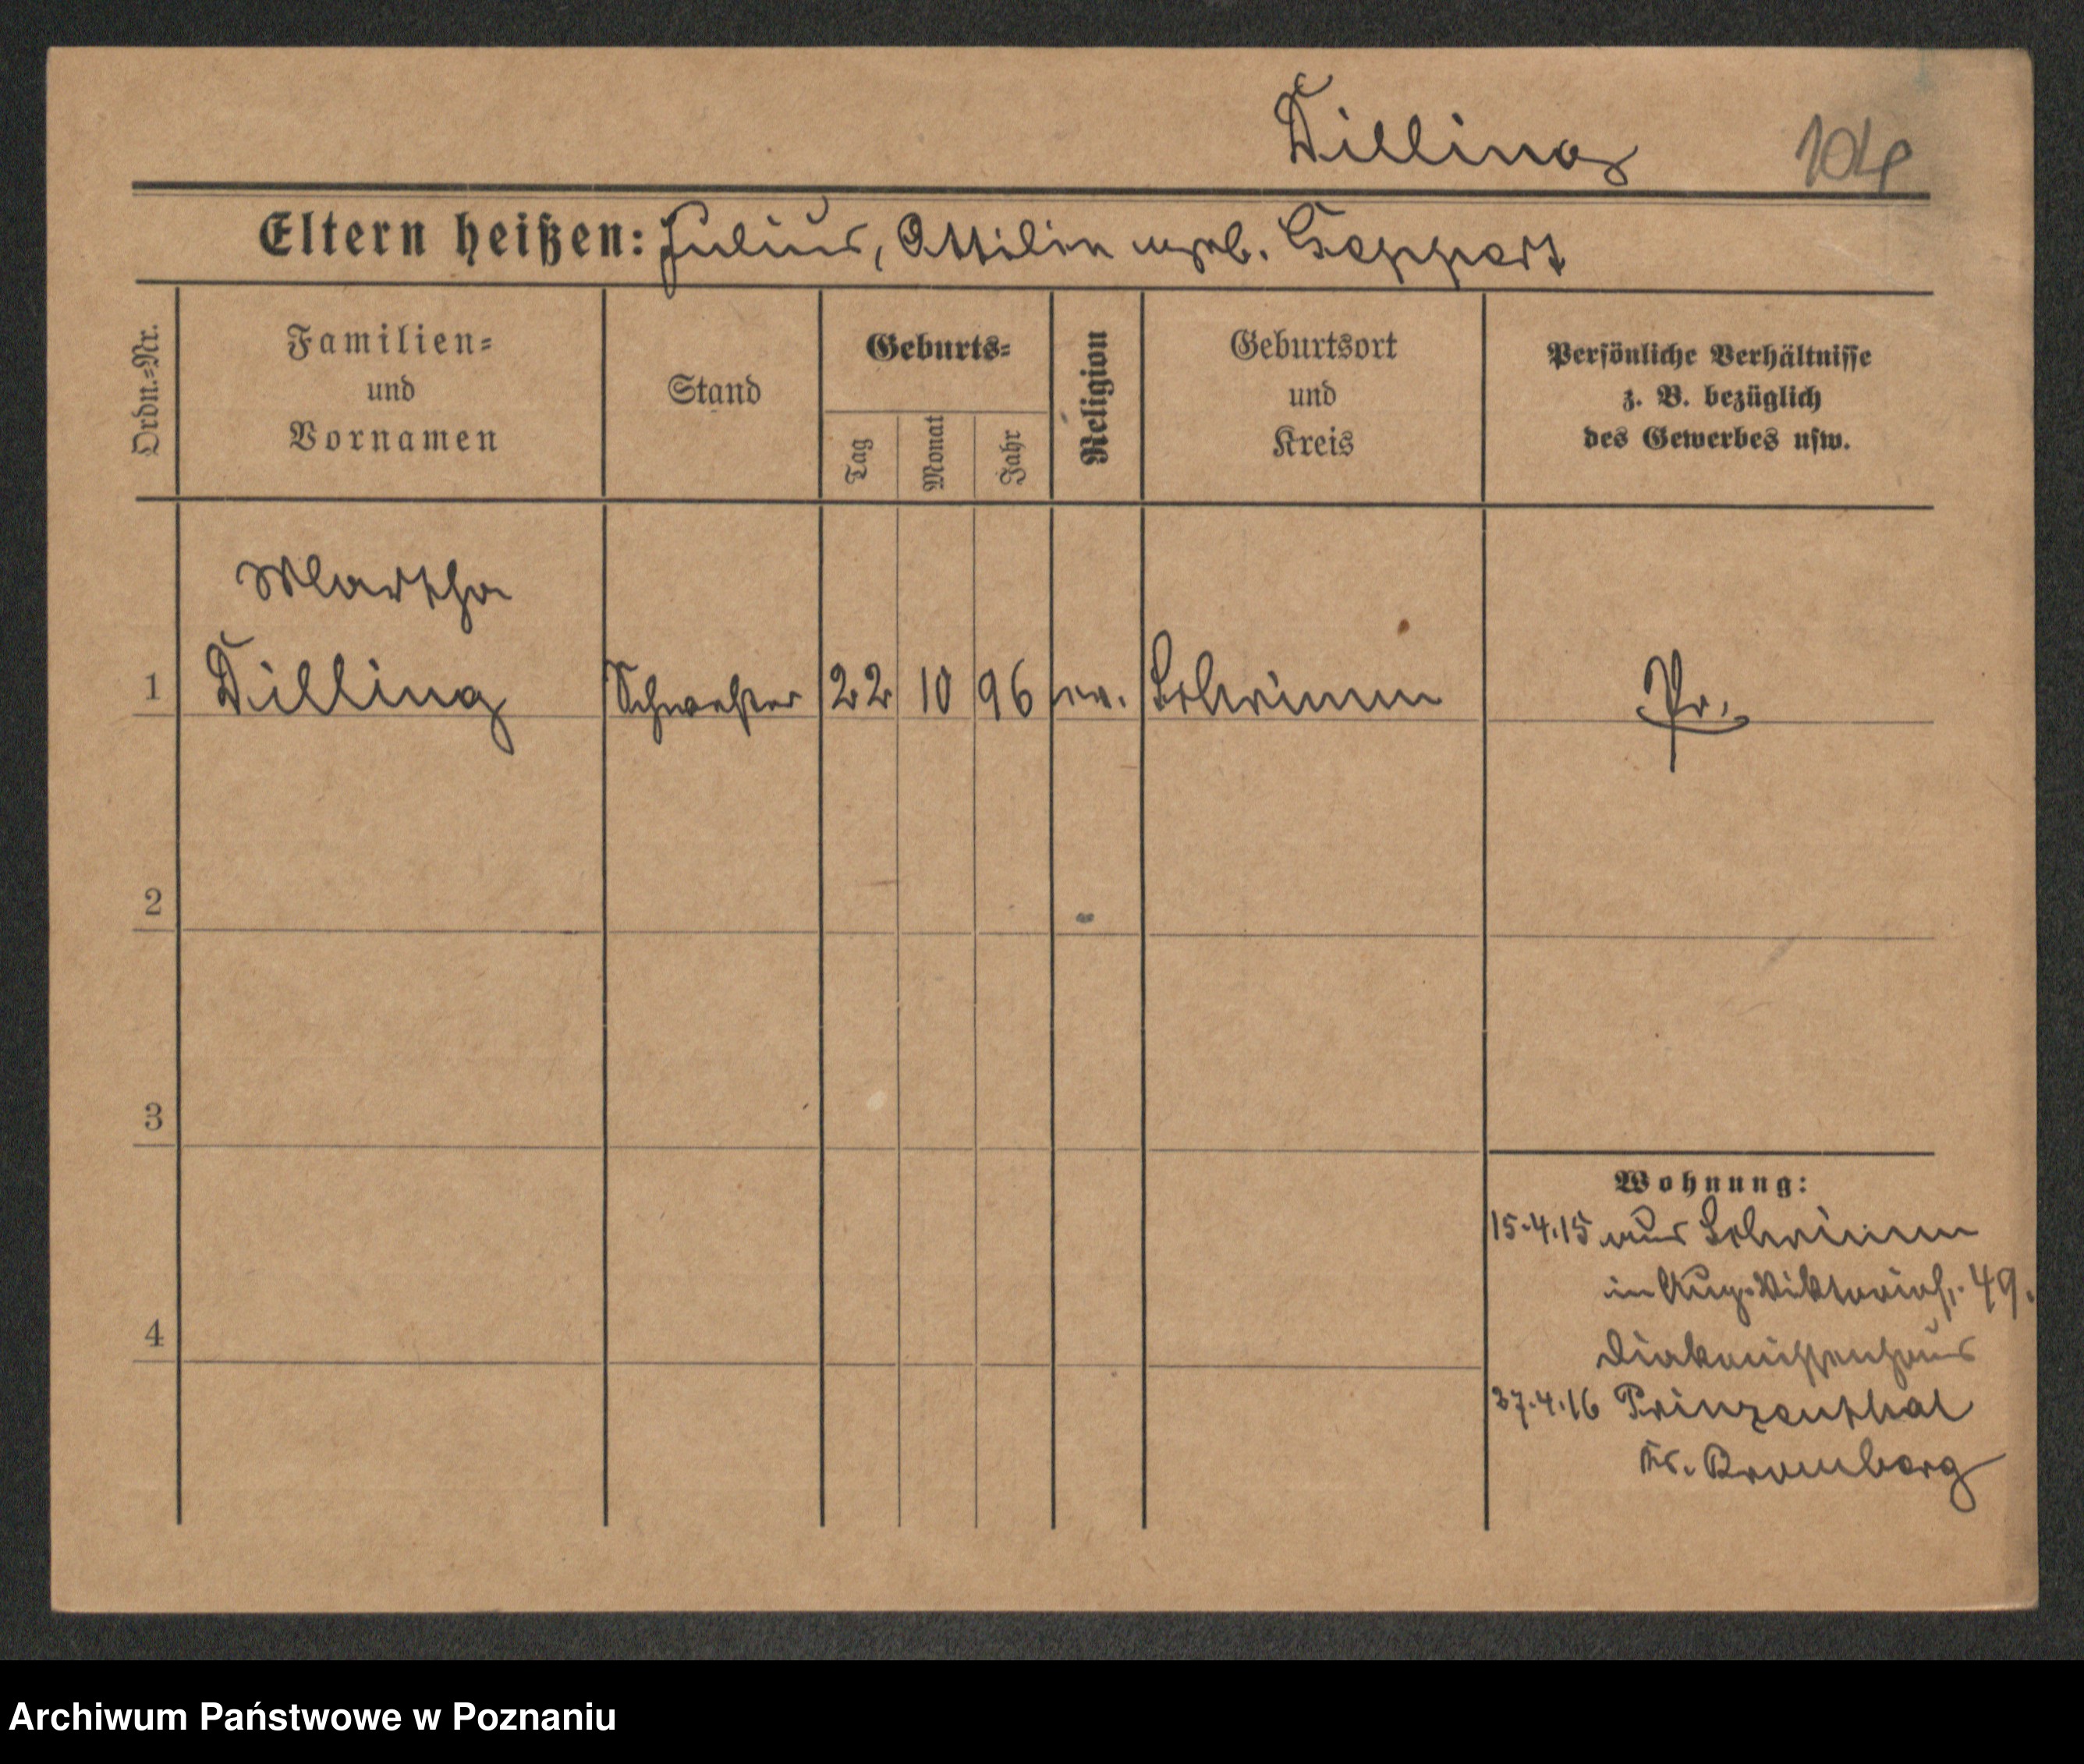 Dilling 104
Eltern heißen: Julius, Ottilie geb. Geppert
Ordn.=Nr.
Familien=
und
Vornamen
Stand
Geburts=
Tag
Monat
Jahr
Religion
Geburtsort
und
Kreis
Persönliche Verhältnisse
z. B. bezüglich
des Gewerbes usw.
Martha
1 Dilling Schwester 22 10 96 ev. Schrimm Pr.
2
3
4
Wohnung:
15.4.15 aus Schrimm
in Aug. Viktoriastr. 49.
Diakonissenhaus
27.4.16 Prinzenthal
Kr. Bromberg
Archiwum Państwowe w Poznaniu